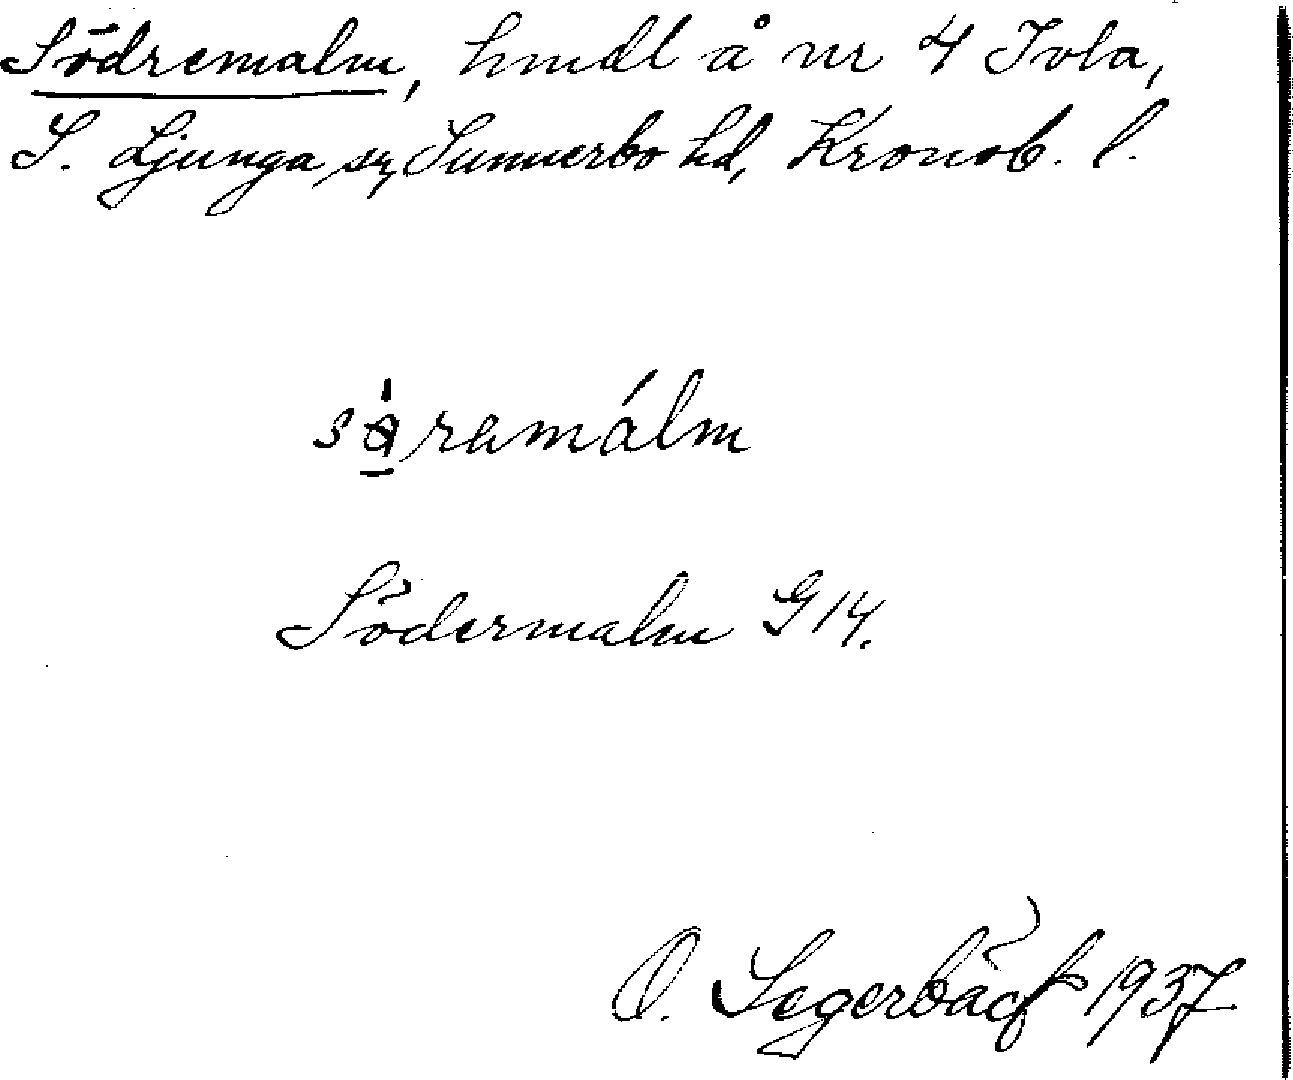 Södremalm, hmdl å nr 4 Ivla,
S. Ljunga sn, Sunnerbo hd, Kronob. l.
ramálm
Södermalm G 14.
O. Segerbäck 1937